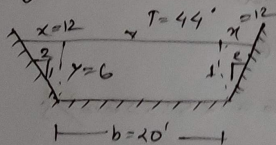 x=12 T=44' x=12
2 1 y=6 1 2
b=20'